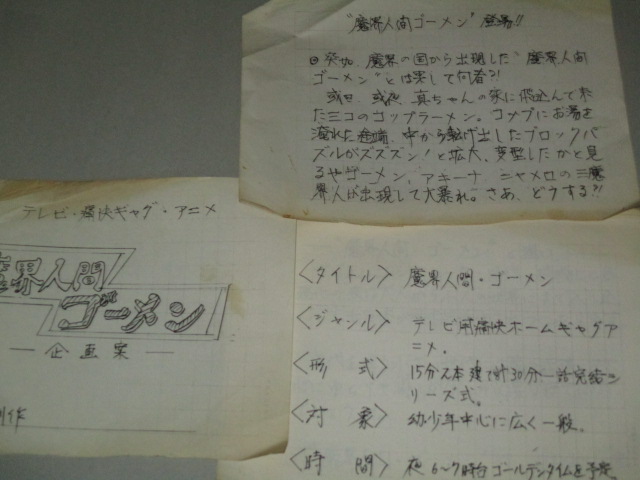 "魔界人間ゴーメン"登場!!
◎突如、魔界の国から出現した"魔界人間
ゴーメン"とは果して何者?!
或日、或夜、真ちゃんの家に飛込んで来
た三コのコップラーメン。コップにお湯を
濯れた途端、中から転げ出したブロックパ
ズルがズズズン!と拡大、変型したかと見
るやゴーメン、アキーナ、ニャメロの三魔
界人が出現して大暴れ。さあ、どうする?!
テレビ・痛快ギャグ・アニメ
魔界人間
ゴーメン
— 企画案 —
制作
〈タイトル〉 魔界人間・ゴーメン
〈ジャンル〉 テレビ用痛快ホームギャグア
ニメ.
〈形 式〉 15分2本建て計30分一話完結シ
リーズ式。
〈対 象〉 幼少年中心に広く一般。
〈時 間〉 夜 6〜7時台ゴールデンタイムを予定